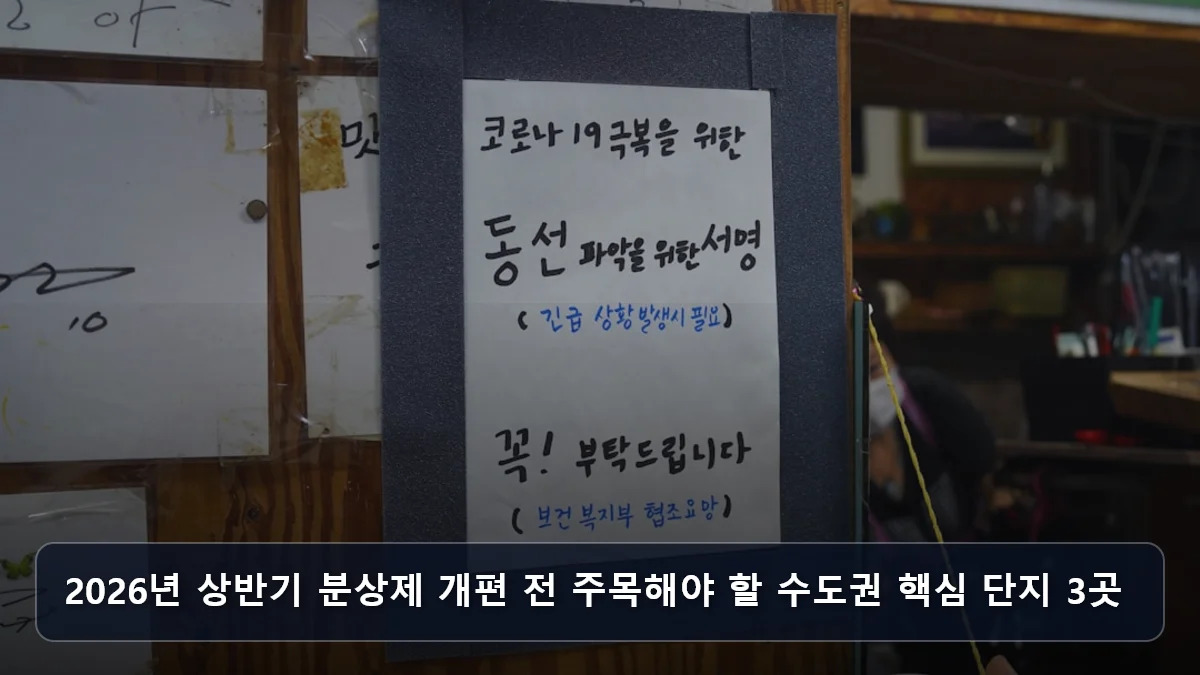 코로나 19 극복을 위한
동선 파악을 위한 서명
( 긴급 상황 발생시 필요)
꼭! 부탁드립니다
( 보건복지부 협조요망)
10
2026년 상반기 분상제 개편 전 주목해야 할 수도권 핵심 단지 3곳